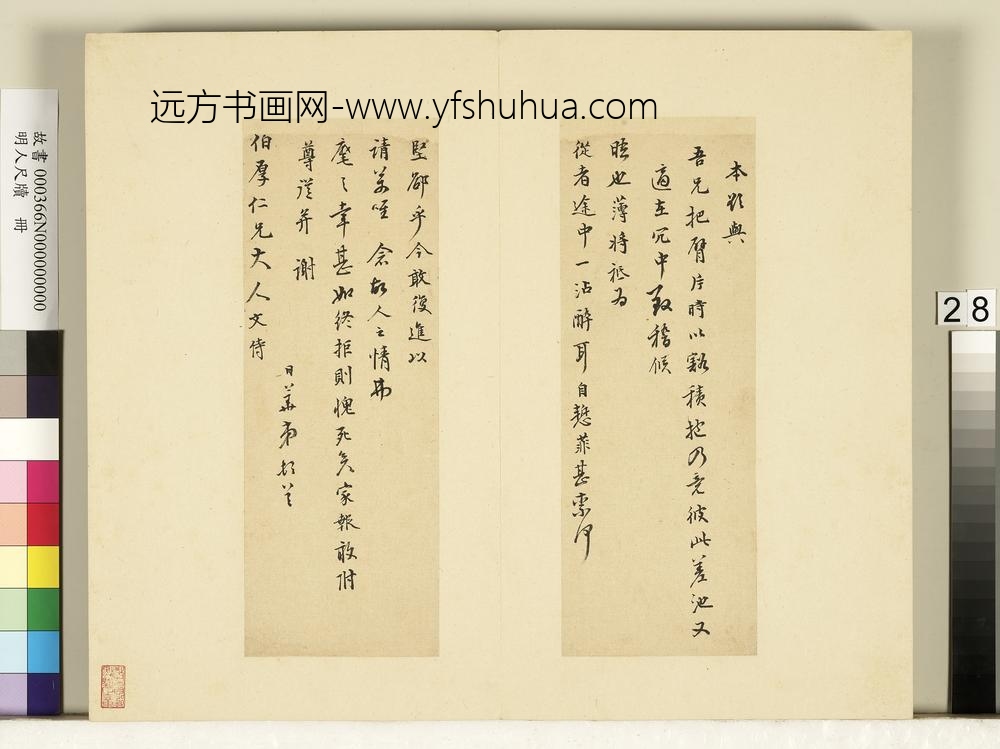 远方书画网-www.yfshuhua.com
本欲與
吾兄把臂片時以豁積抱乃竟彼此差池又
適在冗中致稽候
晤也薄將祗為
從者途中一沾醉耳自愬菲甚
堅郤乎今敢復進以
請萬唯 念故人之情弗
麾之幸甚如終拒則愧死矣家報敢附
尊從并 謝
伯厚仁兄大人文侍
弟
故書 000366N000000000
明人尺牘 冊
28